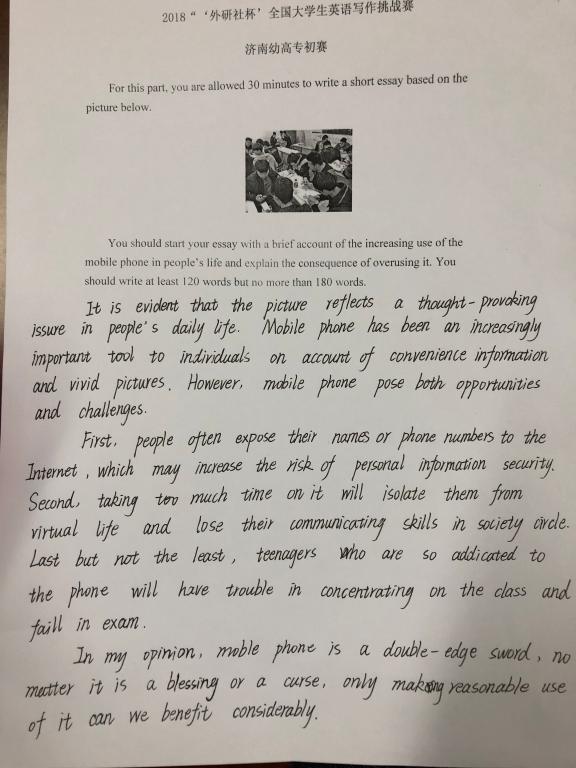 2018“‘外研社杯’全国大学生英语写作挑战赛
济南幼高专初赛
For this part, you are allowed 30 minutes to write a short essay based on the
picture below.
You should start your essay with a brief account of the increasing use of the
mobile phone in people's life and explain the consequence of overusing it. You
should write at least 120 words but no more than 180 words.
It is evident that the picture reflects a thought-provoking
issure in people's daily life. Mobile phone has been an increasingly
important tool to individuals on account of convenience information
and vivid pictures. However, mobile phone pose both opportunities
and challenges.
First, people often expose their names or phone numbers to the
Internet, which may increase the risk of personal information security.
Second, taking too much time on it will isolate them from
virtual life and lose their communicating skills in society circle.
Last but not the least, teenagers who are so addicated to
the phone will have trouble in concentrating on the class and
faill in exam.
In my opinion, moble phone is a double-edge sword, no
matter it is a blessing or a curse, only making reasonable use
of it can we benefit considerably.